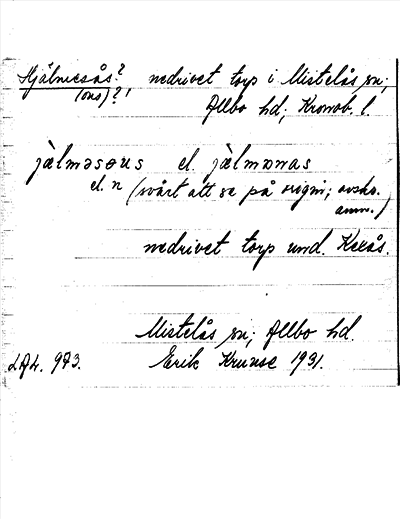 Hjälmesås? nedrivet torp i Mistelås sn;
(ons)?! Allbo hd; Kronob. l.
jàlməsɷus el. jàlmɷnas
el. n (svårt att se på origin; avskr.
anm.)
nedrivet torp und. Kexås.
Mistelås sn; Allbo hd.
LAL. 973. Erik Krunse 1931.